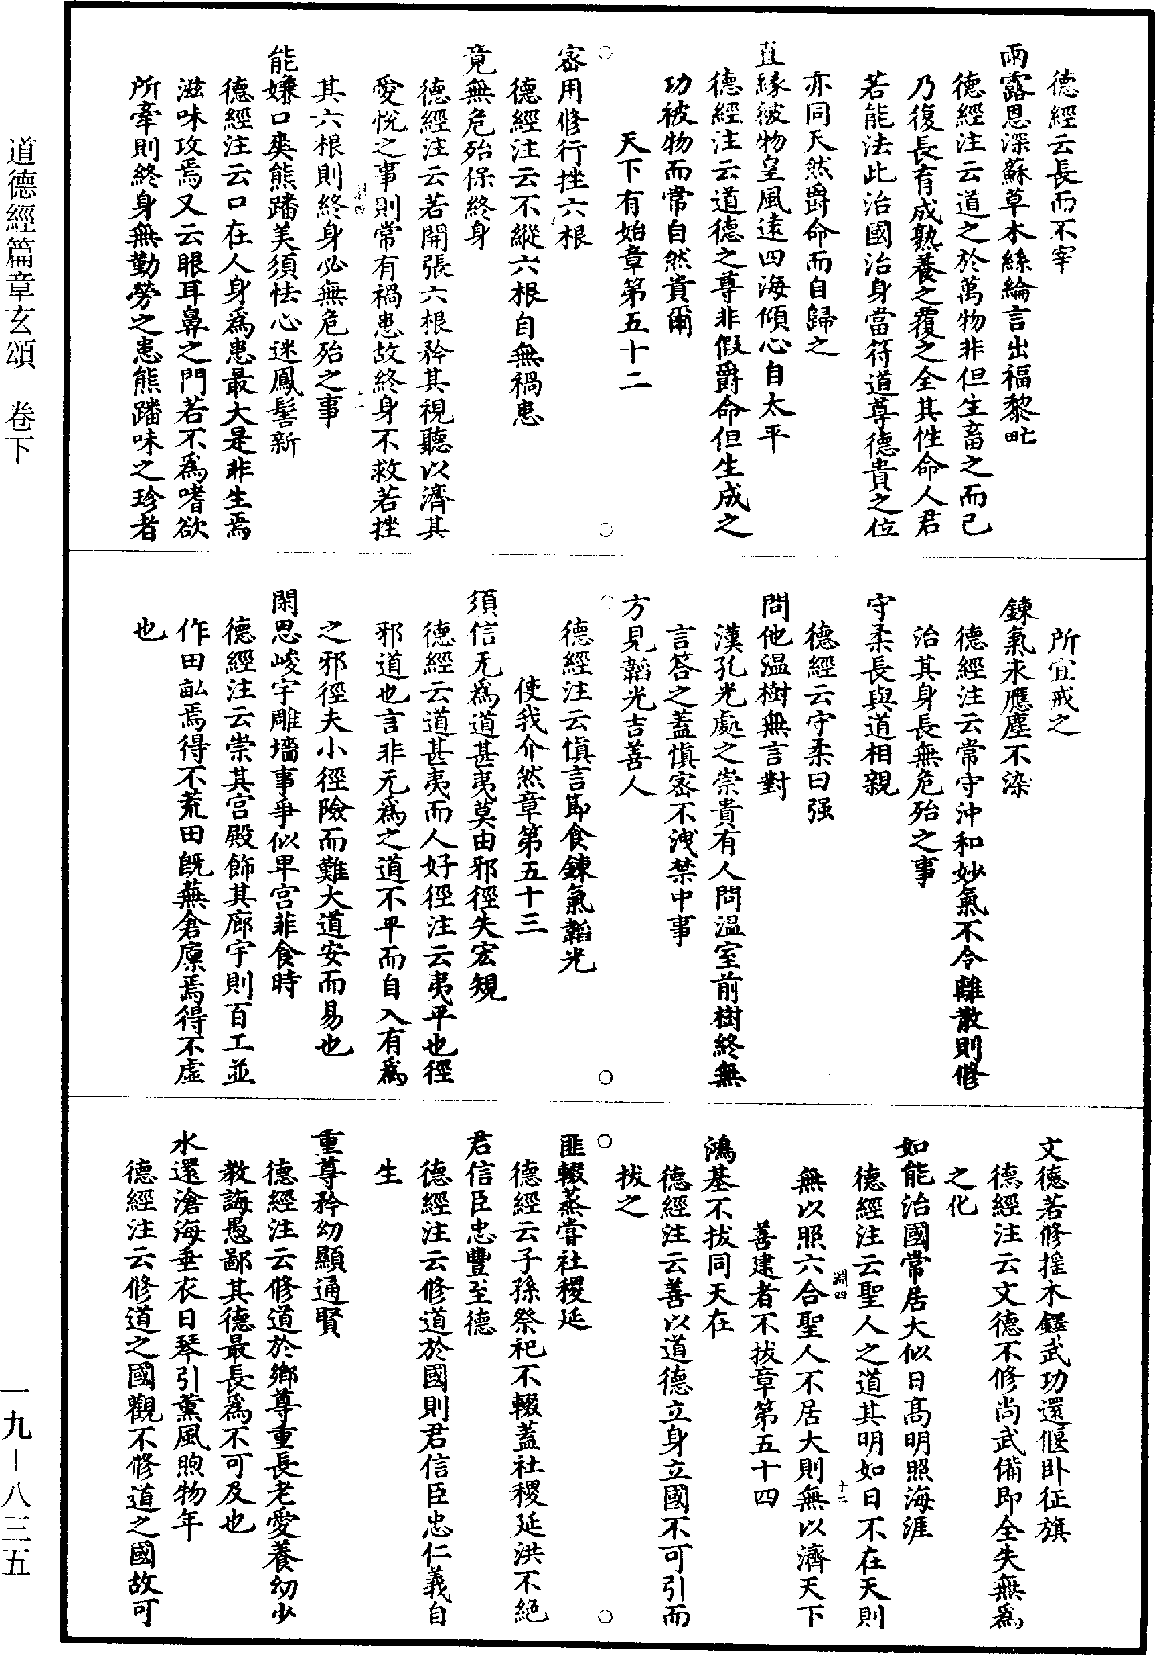 德經云長而不宰
雨露恩深蘇草木絲綸言出福黎甿
德經注云道之於萬物非但生畜之而已
乃復長育成熟養之覆之全其性命人君
若能法此治國治身當符道尊德貴之位
亦同天然爵命而自歸之
直緣彼物皇風遠四海傾心自太平
德經注云道德之尊非假爵命但生成之
功被物而常自然貴爾
天下有始章第五十二
密用修行挫六根
德經注云不縱六根自無禍患
竟無危殆保終身
德經注云若開張六根矜其視聽以濟其
愛悅之事則常有禍患故終身不救若挫
其六根則終身必無危殆之事
能嫌口爽熊蹯美須怯心迷鳳髻新
德經注云口在人身為患最大是非生焉
滋味攻焉又云眼耳鼻之門若不為嗜欲
所牽則終身無勤勞之患熊蹯味之珍者
所宜戒之
鍊氣永應塵不染
德經注云常守沖和妙氣不令離散則修
治其身長無危殆之事
守柔長與道相親
德經云守柔曰强
問他溫樹無言對
漢孔光處之崇貴有人問溫室前樹終無
言答之蓋慎密不洩禁中事
方見韜光吉善人
德經注云慎言節食鍊氣韜光
使我介然章第五十三
須信无為道甚夷莫由邪徑失宏規
德經云道甚夷而人好徑注云夷平也徑
邪道也言非无為之道不平而自入有為
之邪徑夫小徑險而難大道安而易也
閑思峻宇雕墻事爭似卑宮菲食時
德經注云崇其宮殿飾其廊宇則百工並
作田畝焉得不荒田旣蕪倉廩焉得不虛
也
文德若修摧木鐸武功還偃卧征旗
德經注云文德不修尚武備即全失無為
之化
如能治國常居大似日高明照海涯
德經注云聖人之道其明如日不在天則
無以照六合聖人不居大則無以濟天下
善建者不拔章第五十四
鴻基不拔同天在
德經注云善以道德立身立國不可引而
拔之
匪輟蒸嘗社稷延
德經云子孫祭祀不輟蓋社稷延洪不絕
君信臣忠豐至德
德經注云修道於國則君信臣忠仁義自
生
重尊矜幼顯通賢
德經注云修道於鄉尊重長老愛養幼少
教誨愚鄙其德最長為不可及也
水還滄海垂衣日琴引薰風煦物年
德經注云修道之國觀不修道之國故可
道德經篇章玄頌　卷下
一九—八三五
淵四
十二